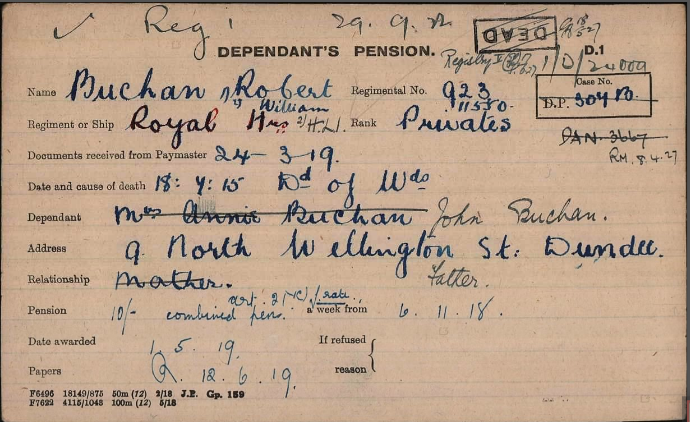 ✓ Reg 29. 9.
DEAD
DEPENDANT'S PENSION.
D.1
1/D/24009
Name Buchan Robert
" William
Regimental No. 923
11550.
Case No.
D.P. 304
Regiment or Ship Royal Hrs 2/H.L.I. Rank Privates
PAN. 3667
RM. 8.4.27
Documents received from Paymaster 24-3-19.
Date and cause of death 18: 4: 15 Dd of Wds
Dependant Mrs Annie Buchan John Buchan.
Address 9 North Wellington St: Dundee.
Relationship Mother. Father.
Pension 10/- combined pens. a week from 6. 11. 18.
art: 2 rate
Date awarded 1. 5. 19.
If refused
reason
Papers R. 12. 6. 19.
F6496 18149/875 50m (12) 2/18 J.P. Gp. 159
F7622 4115/1045 100m (12) 5/18